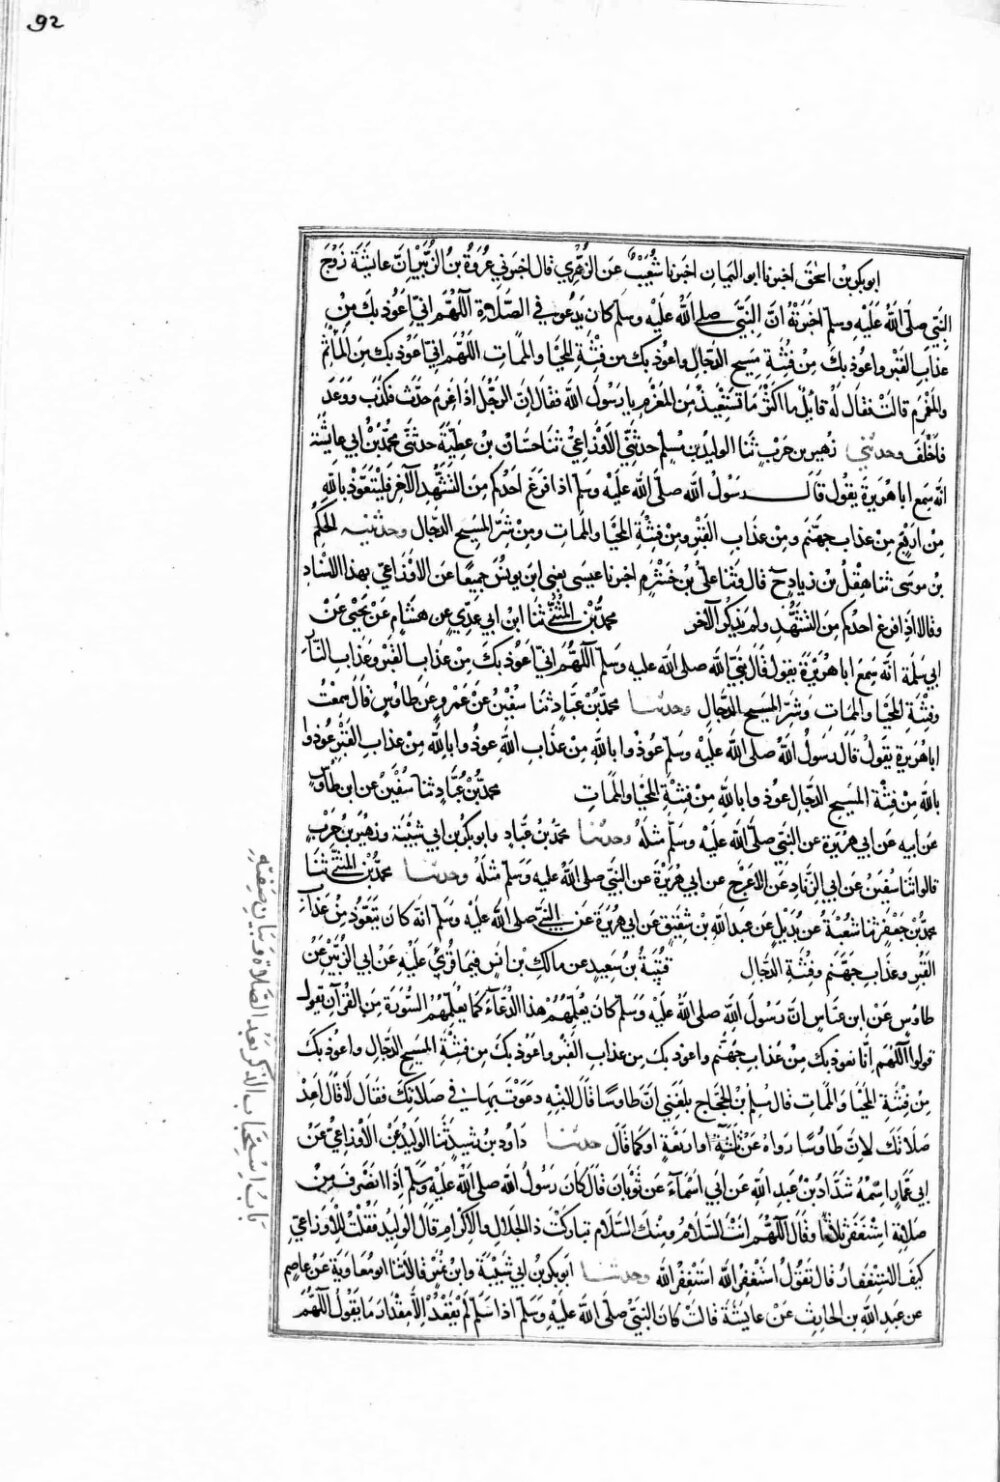 92
ابو بكر بن اسحق اخبرنا ابو اليمان اخبرنا شعيب عن الزهري قال اخبرني عروة بن الزبير ان عايشة زوج
النبي صلى الله عليه وسلم اخبرته ان النبي صلى الله عليه وسلم كان يدعو في الصلاة اللهم اني اعوذ بك من
عذاب القبر واعوذ بك من فتنة مسيح الدجال واعوذ بك من فتنة المحيا والممات اللهم اني اعوذ بك من المأثم
والمغرم قالت فقال له قايل ما اكثر ما تستعيذ من المغرم يا رسول الله فقال ان الرجل اذا غرم حدث فكذب ووعد
فاخلف وحدثني زهير بن حرب ثنا الوليد بن مسلم حدثني الاوزاعي ثنا حسان بن عطية حدثني محمد بن ابي عايشة
انه سمع ابا هريرة يقول قال رسول الله صلى الله عليه وسلم اذا فرغ احدكم من التشهد الآخر فليتعوذ بالله
من اربع من عذاب جهنم ومن عذاب القبر ومن فتنة المحيا والممات ومن شر المسيح الدجال وحدثنيه الحكم
بن موسى ثنا هقل بن زياد ح قال وثنا علي بن خشرم اخبرنا عيسى يعني ابن يونس جميعا عن الاوزاعي بهذا الاسناد
وقالا اذا فرغ احدكم من التشهد ولم يذكر الآخر محمد بن المثنى ثنا ابن ابي عدي عن هشام عن يحيى عن
ابي سلمة انه سمع ابا هريرة يقول قال نبي الله صلى الله عليه وسلم اللهم اني اعوذ بك من عذاب القبر وعذاب النار
وفتنة المحيا والممات وشر المسيح الدجال وحدثنا محمد بن عباد ثنا سفين عن عمرو عن طاوس قال سمعت
ابا هريرة يقول قال رسول الله صلى الله عليه وسلم عوذوا بالله من عذاب الله عوذوا بالله من عذاب القبر عوذوا
بالله من فتنة المسيح الدجال عوذوا بالله من فتنة المحيا والممات محمد بن عباد ثنا سفين عن ابن طاوس
عن ابيه عن ابي هريرة عن النبي صلى الله عليه وسلم مثله وحدثنا محمد بن عباد وابو بكر بن ابي شيبة وزهير بن حرب
قالوا ثنا سفين عن ابي الزناد عن الاعرج عن ابي هريرة عن النبي صلى الله عليه وسلم مثله وحدثنا محمد بن المثنى ثنا
محمد بن جعفر ثنا شعبة عن بديل عن عبد الله بن شقيق عن ابي هريرة عن النبي صلى الله عليه وسلم انه كان يتعوذ من عذاب
القبر وعذاب جهنم وفتنة الدجال قتيبة بن سعيد عن مالك بن انس فيما قرئ عليه عن ابي الزبير عن
طاوس عن ابن عباس ان رسول الله صلى الله عليه وسلم كان يعلمهم هذا الدعاء كما يعلمهم السورة من القرآن يقول
قولوا اللهم انا نعوذ بك من عذاب جهنم واعوذ بك من عذاب القبر واعوذ بك من فتنة المسيح الدجال واعوذ بك
من فتنة المحيا والممات قال مسلم بن الحجاج بلغني ان طاوسا قال لابنه دعوت بها في صلاتك فقال لا قال اعد
صلاتك لان طاوسا رواه عن ثلثة او اربعة او كما قال حدثنا داود بن رشيد ثنا الوليد عن الاوزاعي عن
ابي عمار اسمه شداد بن عبد الله عن ابي اسماء عن ثوبان قال كان رسول الله صلى الله عليه وسلم اذا انصرف من
صلاته استغفر ثلاثا وقال اللهم انت السلام ومنك السلام تباركت ذا الجلال والاكرام قال الوليد فقلت للاوزاعي
كيف الاستغفار قال تقول استغفر الله استغفر الله وحدثنا ابو بكر بن ابي شيبة وابن نمير قالا ثنا ابو معاوية عن عاصم
عن عبد الله بن الحارث عن عايشة قالت كان النبي صلى الله عليه وسلم اذا سلم لم يقعد الا مقدار ما يقول اللهم
باب استحباب الذكر بعد الصلاة وبيان صفته